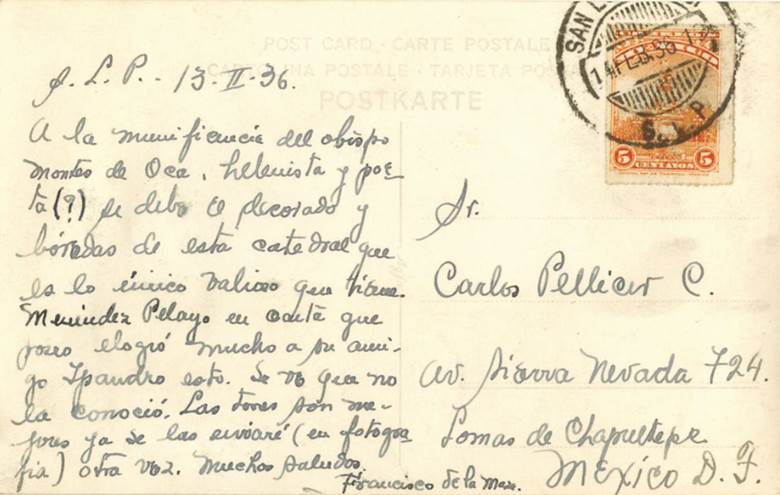 POST CARD - CARTE POSTALE
CARTOLINA POSTALE - TARJETA POSTAL
POSTKARTE
SAN L
14 FEB. 36
S. L. P.
5 CENTAVOS 5
S. L. P. - 13-II-36.
A la munificencia del obispo
Montes de Oca, helenista y poe-
ta (?) se debe el decorado y
bóvedas de esta catedral que
es lo único valioso que tiene.
Menéndez Pelayo en carta que
poseo elogió mucho a su ami-
go Ipandro esto. Se ve que no
la conoció. Las torres son me-
jores ya se las enviaré (en fotogra
fia) otra vez. Muchos saludos.
Francisco de la Maza.
Sr.
Carlos Pellicer C.
Av. Sierra Nevada 724.
Lomas de Chapultepec
México D. F.